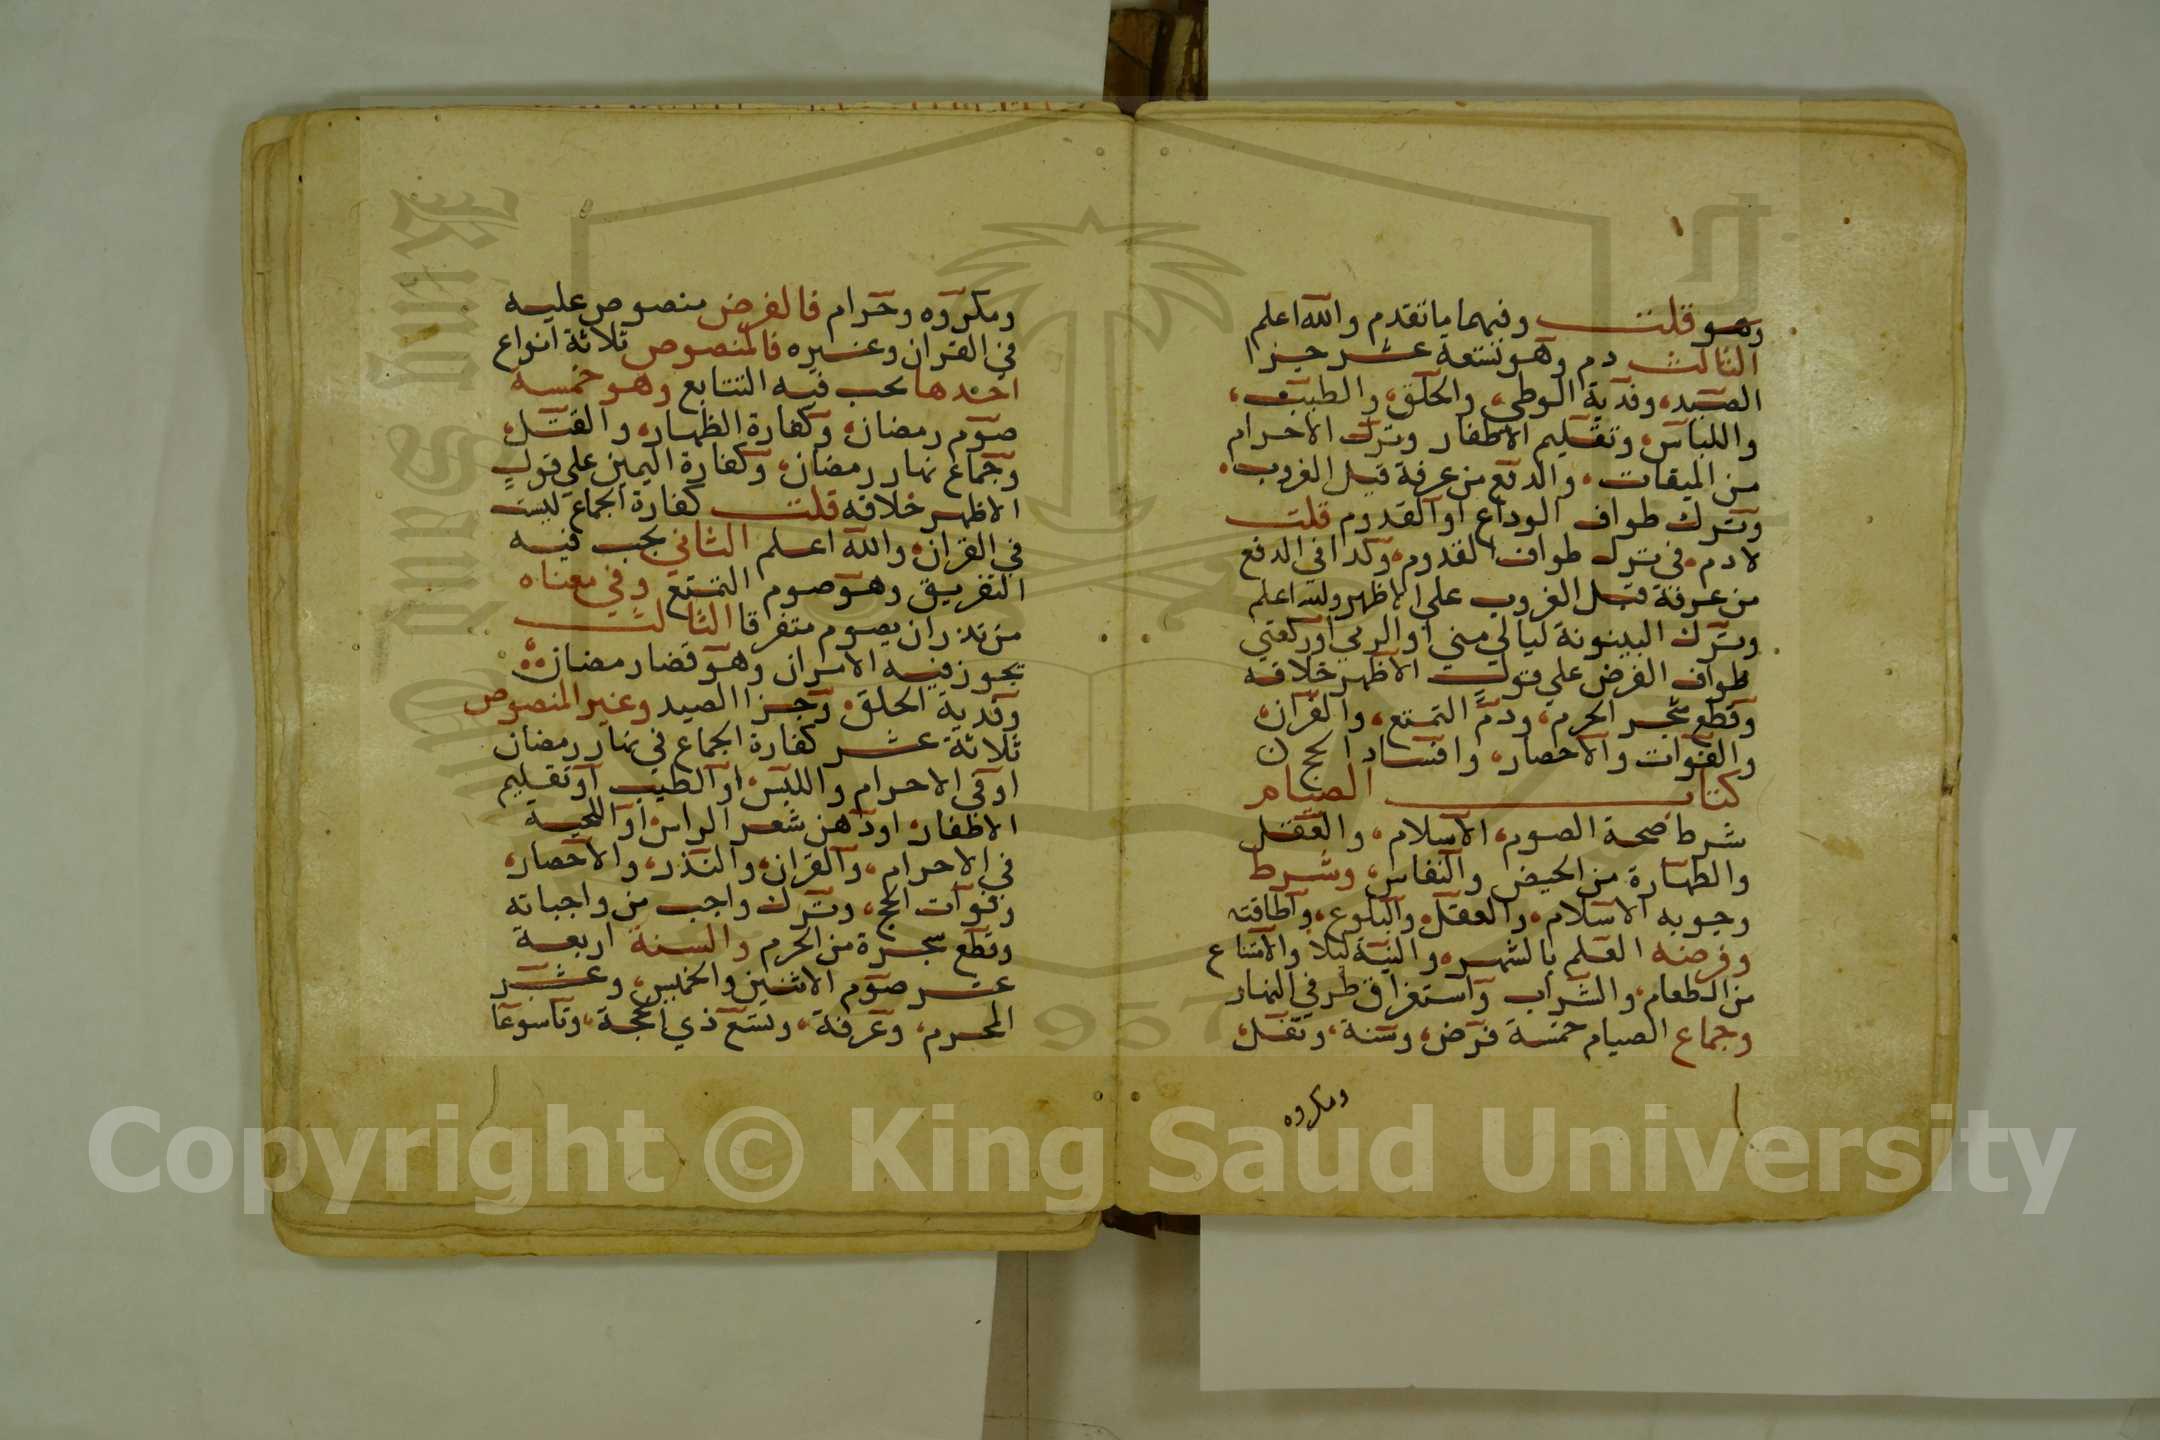 وهو قلت وفيهما ما تقدم والله اعلم
الثالث دم وهو تسعة عشر جزا
الصيد، وفدية الوطي، والحلق، والطيب،
واللباس، وتقليم الاظفار وترك الاحرام
من الميقات، والدفع من عرفة قبل الغروب،
وترك طواف الوداع او القدوم قلت
لا دم، في ترك طواف القدوم، وكذا في الدفع
من عرفة قبل الغروب على الاظهر والله اعلم
وترك البينونة ليالي مني او الرمي او ركعتي
طواف الفرض علي قول الاظهر خلافه
وقطع شجر الحرم، ودم التمتع، والقران،
والفوات والاحصار، وافساد الحج ن
كتاب الصيام
شرط صحة الصوم، الاسلام، والعقل
والطهارة من الحيض والنفاس، وشرط
وجوبه الاسلام، والعقل، والبلوغ، واطاقته
وفرضه العلم بالشهر، والنية ليلا والامتناع
من الطعام، والشراب واستغراق طرفي النهار
وجماع الصيام خمسة فرض، وسنة، ونفل،
ومكروه
ومكروه وحرام فالفرض منصوص عليه
في القران وغيره فالمنصوص ثلاثة انواع
احدها يجب فيه التتابع وهو خمسة
صوم رمضان، وكفارة الظهار، والقتل،
وجماع نهار رمضان، وكفارة اليمين علي قول
الاظهر خلافه قلت كفارة الجماع ليست
في القران، والله اعلم الثاني يجب فيه
التفريق وهو صوم التمتع وفي معناه
من نذر ان يصوم متفرقا الثالث
يجوز فيه الامران وهو قضا رمضان،
وفدية الحلق، وجزا الصيد وغير المنصوص
ثلاثة عشر كفارة الجماع في نهار رمضان
او في الاحرام واللبس، او الطيب او تقليم
الاظفار، او دهن شعر الراس، او اللحية
في الاحرام، والقران، والنذر، والاحصار،
وفوات الحج، وترك واجب من واجباته
وقطع شجرة من الحرم والسنة اربعة
عشر صوم الاثنين والخميس، وعشر
المحرم، وعرفة، وتسع ذي الحجة، وتاسوعا
1957
Copyright © King Saud University